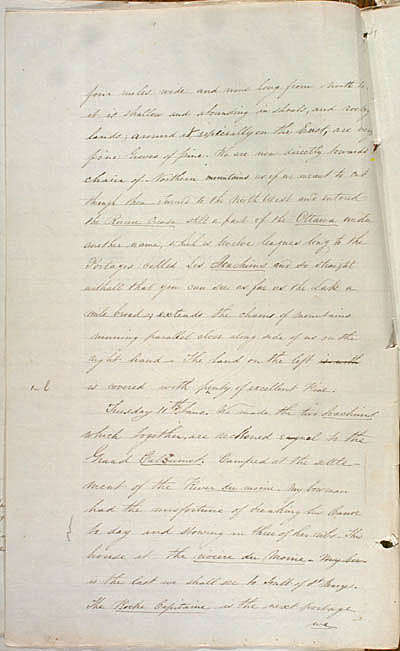 four miles wide and nine long from North to
it is shallow and abounding in shoals, and rocky
lands, around it especially on the East, are very
fine Groves of pine. We are now directly towards
chain of Northern mountains as if we meant to
though then turned to the North West and entered
the River Creuse still a part of the Ottawa under
another name, which is twelve leagues long to the
Portages called Les Joachims and so straight
withall that you can see as far as the Lake a
mile broad, extends the chains of mountains
running parallel close along side of us on the
right hand. The land on the left is with
is covered with plenty of excellent Pine.
Tuesday 11th June. We made the two Joachims
which together, are reckoned equal to the
Grand Calumet. Camped at the settle
ment of the River du moine my bowman
had the misfortune of breaking his Canoe
to day and stowing in three of her ribs. This
house at the riviere du Moine
is the last we shall see to Sault of St. Marys.
The Roche Capitaine is the next portage
we